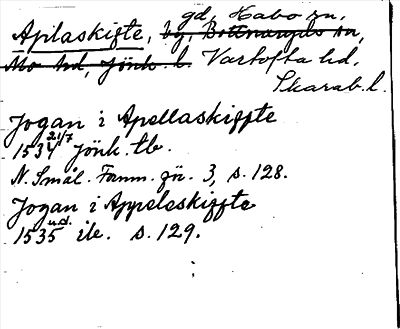 gd, Habo sn,
Apilaskifte, by, Bottnaryds sn,
Mo hd, Jönk. l. Vartofta hd,
Skarab. l.
Jogan i Apellaskiffte
1534 21/7 Jönk. tb.
N. Smål. Fornm. för. 3, s. 128.
Jogan i Appeleskiffte
1535 u.d. ib. s. 129.